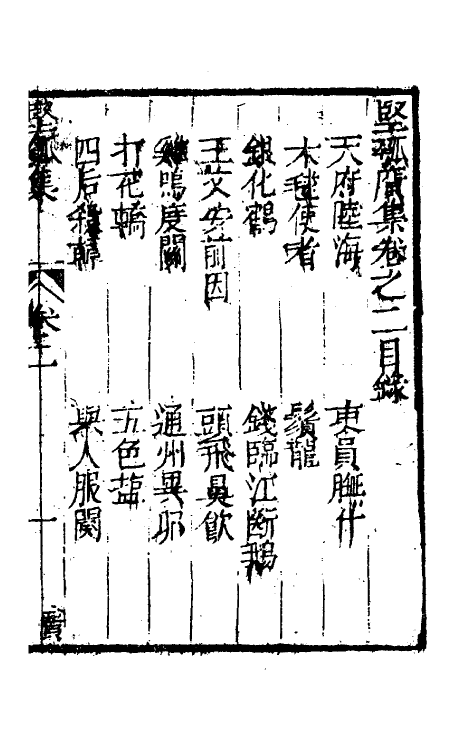 堅瓠廣集卷之二目錄
天府陸海
東員
木毬使者
鬚龍
銀化鶴
錢臨江斷鵝
王文安前因
頭飛鼻飲
雞鳴度關
通州異
打花
五色鹽
四后
與人服闋
堅瓠集
卷二
一
廣